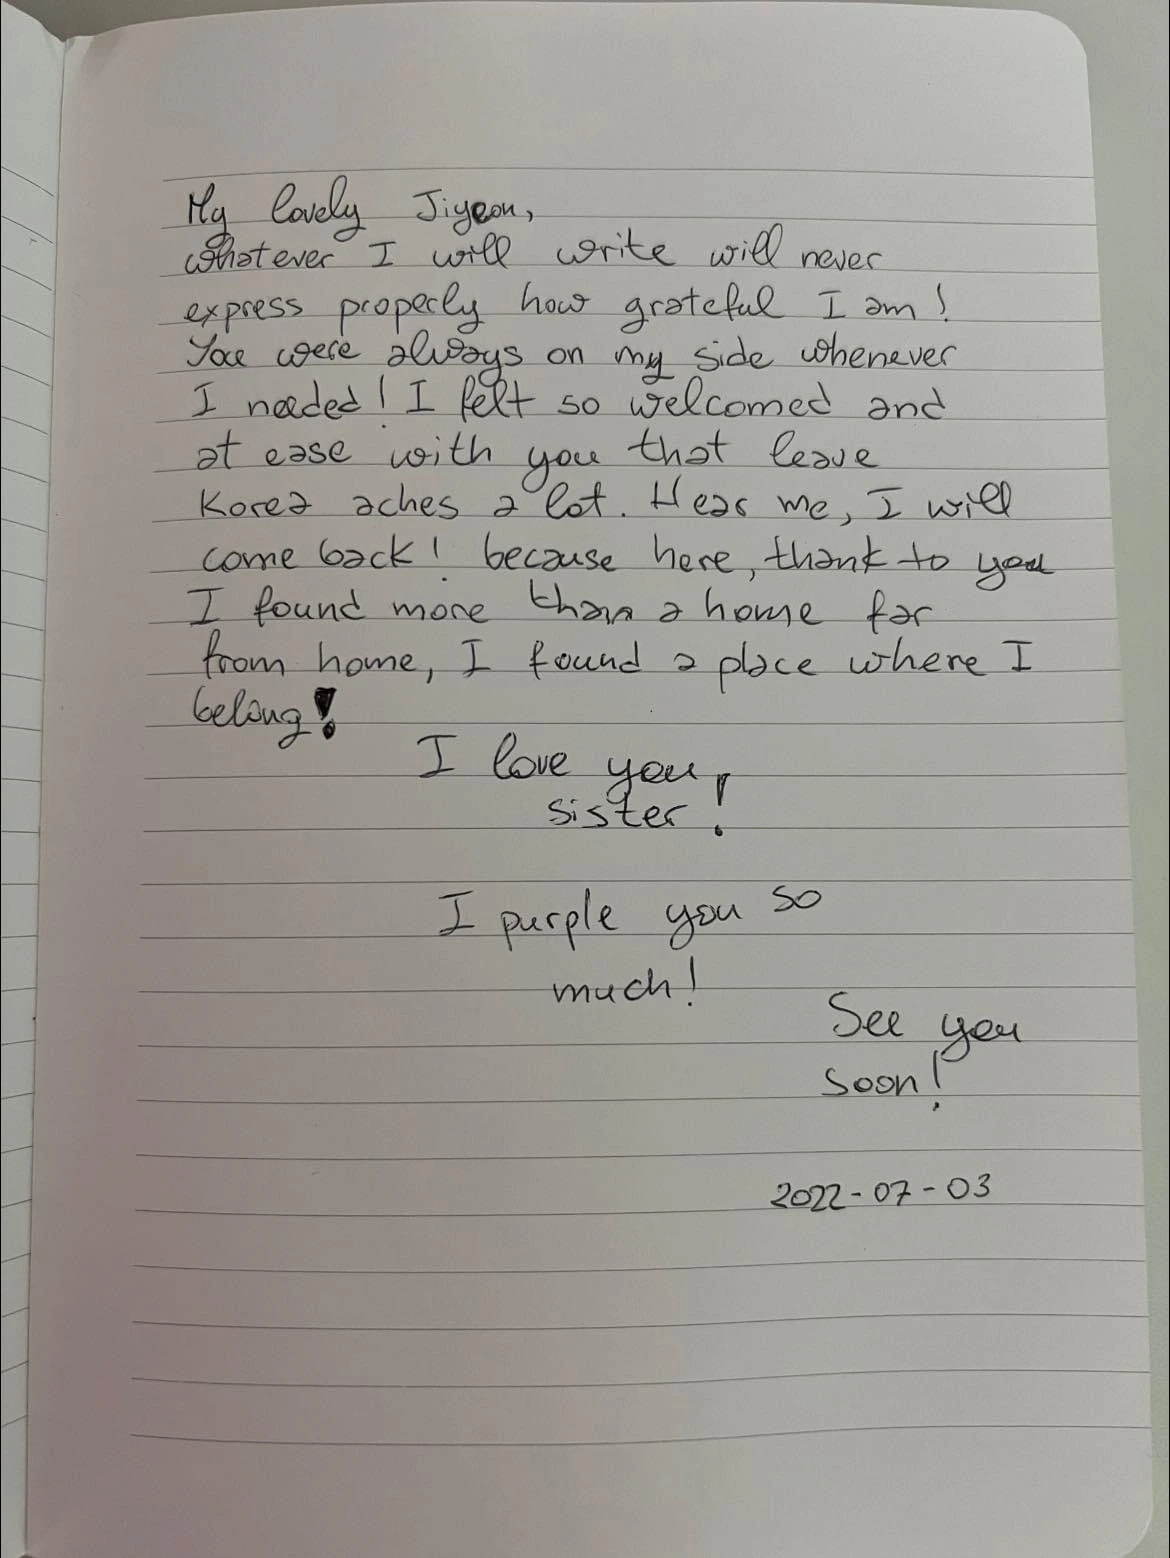 My lovely Jiyeon,
whatever I will write will never
express properly how grateful I am!
You were always on my side whenever
I needed! I felt so welcomed and
at ease with you that leave
Korea aches a lot. Hear me, I will
come back! because here, thank to you
I found more than a home far
from home, I found a place where I
belong!
I love you
sister!
I purple you so
much!
See you
soon!
2022-07-03